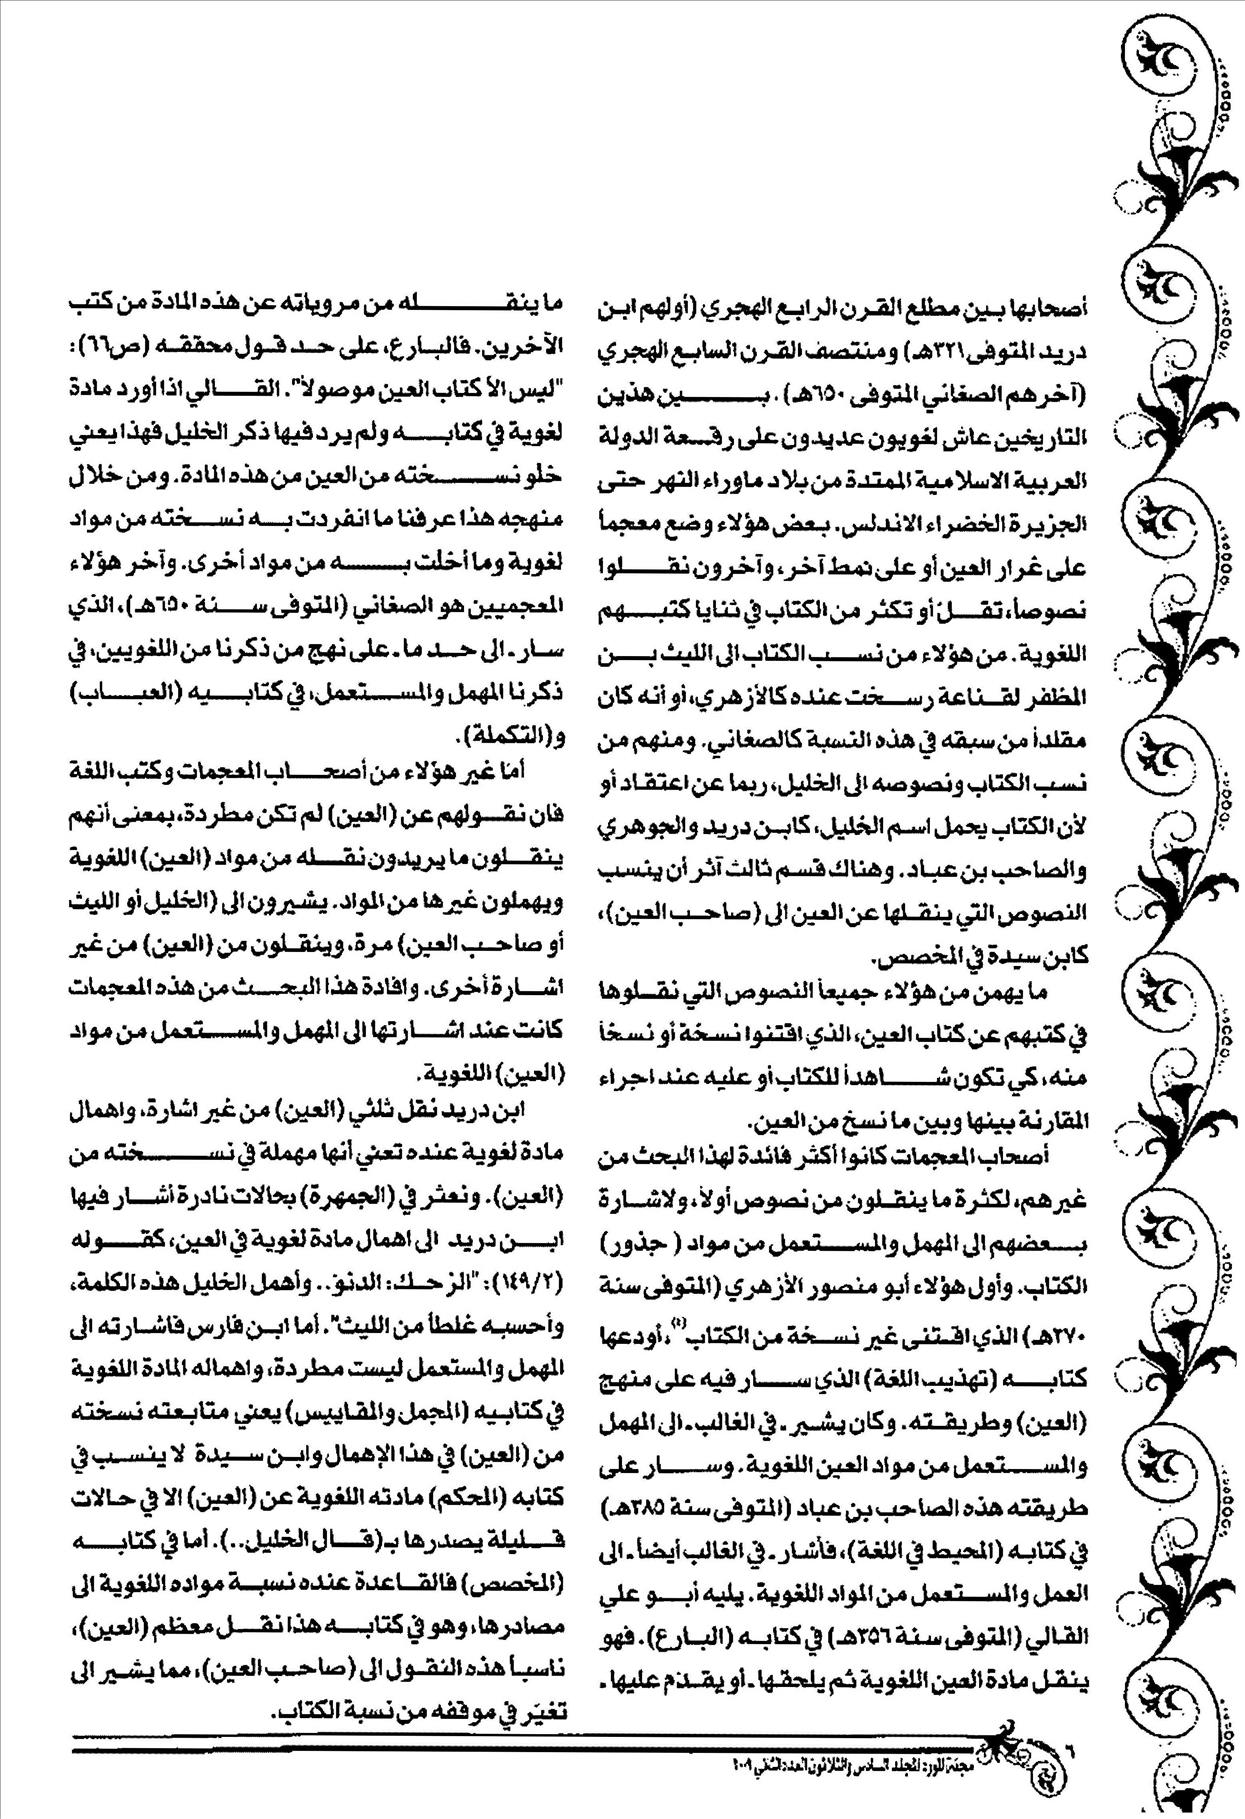 أصحابها بين مطلع القرن الرابع الهجري (أولهم ابن
دريد المتوفى ٣٢١هـ) ومنتصف القرن السابع الهجري
(آخرهم الصغاني المتوفى ٦٥٠هـ). بين هذين
التاريخين عاش لغويون عديدون على رقعة الدولة
العربية الاسلامية الممتدة من بلاد ماوراء النهر حتى
الجزيرة الخضراء الاندلس. بعض هؤلاء وضع معجماً
على غرار العين أو على نمط آخر، وآخرون نقلوا
نصوصاً، تقلّ أو تكثر من الكتاب في ثنايا كتبهم
اللغوية. من هؤلاء من نسب الكتاب الى الليث بن
المظفر لقناعة رسخت عنده كالأزهري، أو أنه كان
مقلداً من سبقه في هذه النسبة كالصغاني. ومنهم من
نسب الكتاب ونصوصه الى الخليل، ربما عن اعتقاد أو
لأن الكتاب يحمل اسم الخليل، كابن دريد والجوهري
والصاحب بن عباد. وهناك قسم ثالث آثر أن ينسب
النصوص التي ينقلها عن العين الى (صاحب العين)،
كابن سيدة في المخصص.
ما يهمن من هؤلاء جميعاً النصوص التي نقلوها
في كتبهم عن كتاب العين، الذي اقتنوا نسخة أو نسخاً
منه، كي تكون شاهداً للكتاب أو عليه عند اجراء
المقارنة بينها وبين ما نسخ من العين.
أصحاب المعجمات كانوا أكثر فائدة لهذا البحث من
غيرهم، لكثرة ما ينقلون من نصوص أولاً، ولاشارة
بعضهم الى المهمل والمستعمل من مواد ( جذور)
الكتاب. وأول هؤلاء أبو منصور الأزهري (المتوفى سنة
٣٧٠هـ) الذي اقتنى غير نسخة من الكتاب(٤)، أودعها
كتابه (تهذيب اللغة) الذي سار فيه على منهج
(العين) وطريقته. وكان يشير ـ في الغالب ـ الى المهمل
والمستعمل من مواد العين اللغوية. وسار على
طريقته هذه الصاحب بن عباد (المتوفى سنة ٣٨٥هـ)
في كتابه (المحيط في اللغة)، فأشار ـ في الغالب أيضاً ـ الى
العمل والمستعمل من المواد اللغوية. يليه أبو علي
القالي (المتوفى سنة ٣٥٦هـ) في كتابه (البارع). فهو
ينقل مادة العين اللغوية ثم يلحقها ـ أو يقدّم عليها ـ
ما ينقله من مروياته عن هذه المادة من كتب
الآخرين. فالبارع، على حد قول محققه (ص٦٦):
"ليس الأ كتاب العين موصولاً". القالي اذا أورد مادة
لغوية في كتابه ولم يرد فيها ذكر الخليل فهذا يعني
خلو نسخته من العين من هذه المادة. ومن خلال
منهجه هذا عرفنا ما انفردت به نسخته من مواد
لغوية وما أخلت به من مواد أخرى. وآخر هؤلاء
المعجميين هو الصغاني (المتوفى سنة ٦٥٠هـ)، الذي
سار ـ الى حد ما ـ على نهج من ذكرنا من اللغويين، في
ذكرنا المهمل والمستعمل، في كتابيه (العباب)
و(التكملة).
أمّا غير هؤلاء من أصحاب المعجمات وكتب اللغة
فان نقولهم عن (العين) لم تكن مطردة، بمعنى أنهم
ينقلون ما يريدون نقله من مواد (العين) اللغوية
ويهملون غيرها من المواد. يشيرون الى (الخليل أو الليث
أو صاحب العين) مرة، وينقلون من (العين) من غير
اشارة أخرى. وافادة هذا البحث من هذه المعجمات
كانت عند اشارتها الى المهمل والمستعمل من مواد
(العين) اللغوية.
ابن دريد نقل ثلثي (العين) من غير اشارة، واهمال
مادة لغوية عنده تعني أنها مهملة في نسخته من
(العين). ونعثر في (الجمهرة) بحالات نادرة أشار فيها
ابن دريد الى اهمال مادة لغوية في العين، كقوله
(١٤٩/٢): "الزحك: الدنو.. وأهمل الخليل هذه الكلمة،
وأحسبه غلطاً من الليث". أما ابن فارس فاشارته الى
المهمل والمستعمل ليست مطردة، واهماله المادة اللغوية
في كتابيه (المجمل والمقاييس) يعني متابعته نسخته
من (العين) في هذا الإهمال وابن سيدة لا ينسب في
كتابه (المحكم) مادته اللغوية عن (العين) الا في حالات
قليلة يصدرها بـ(قال الخليل..). أما في كتابه
(المخصص) فالقاعدة عنده نسبة مواده اللغوية الى
مصادرها، وهو في كتابه هذا نقل معظم (العين)،
ناسباً هذه النقول الى (صاحب العين)، مما يشير الى
تغيّر في موقفه من نسبة الكتاب.
٦
مجلة المورد المجلد السادس والثلاثون العدد الثاني ٢٠٠٩